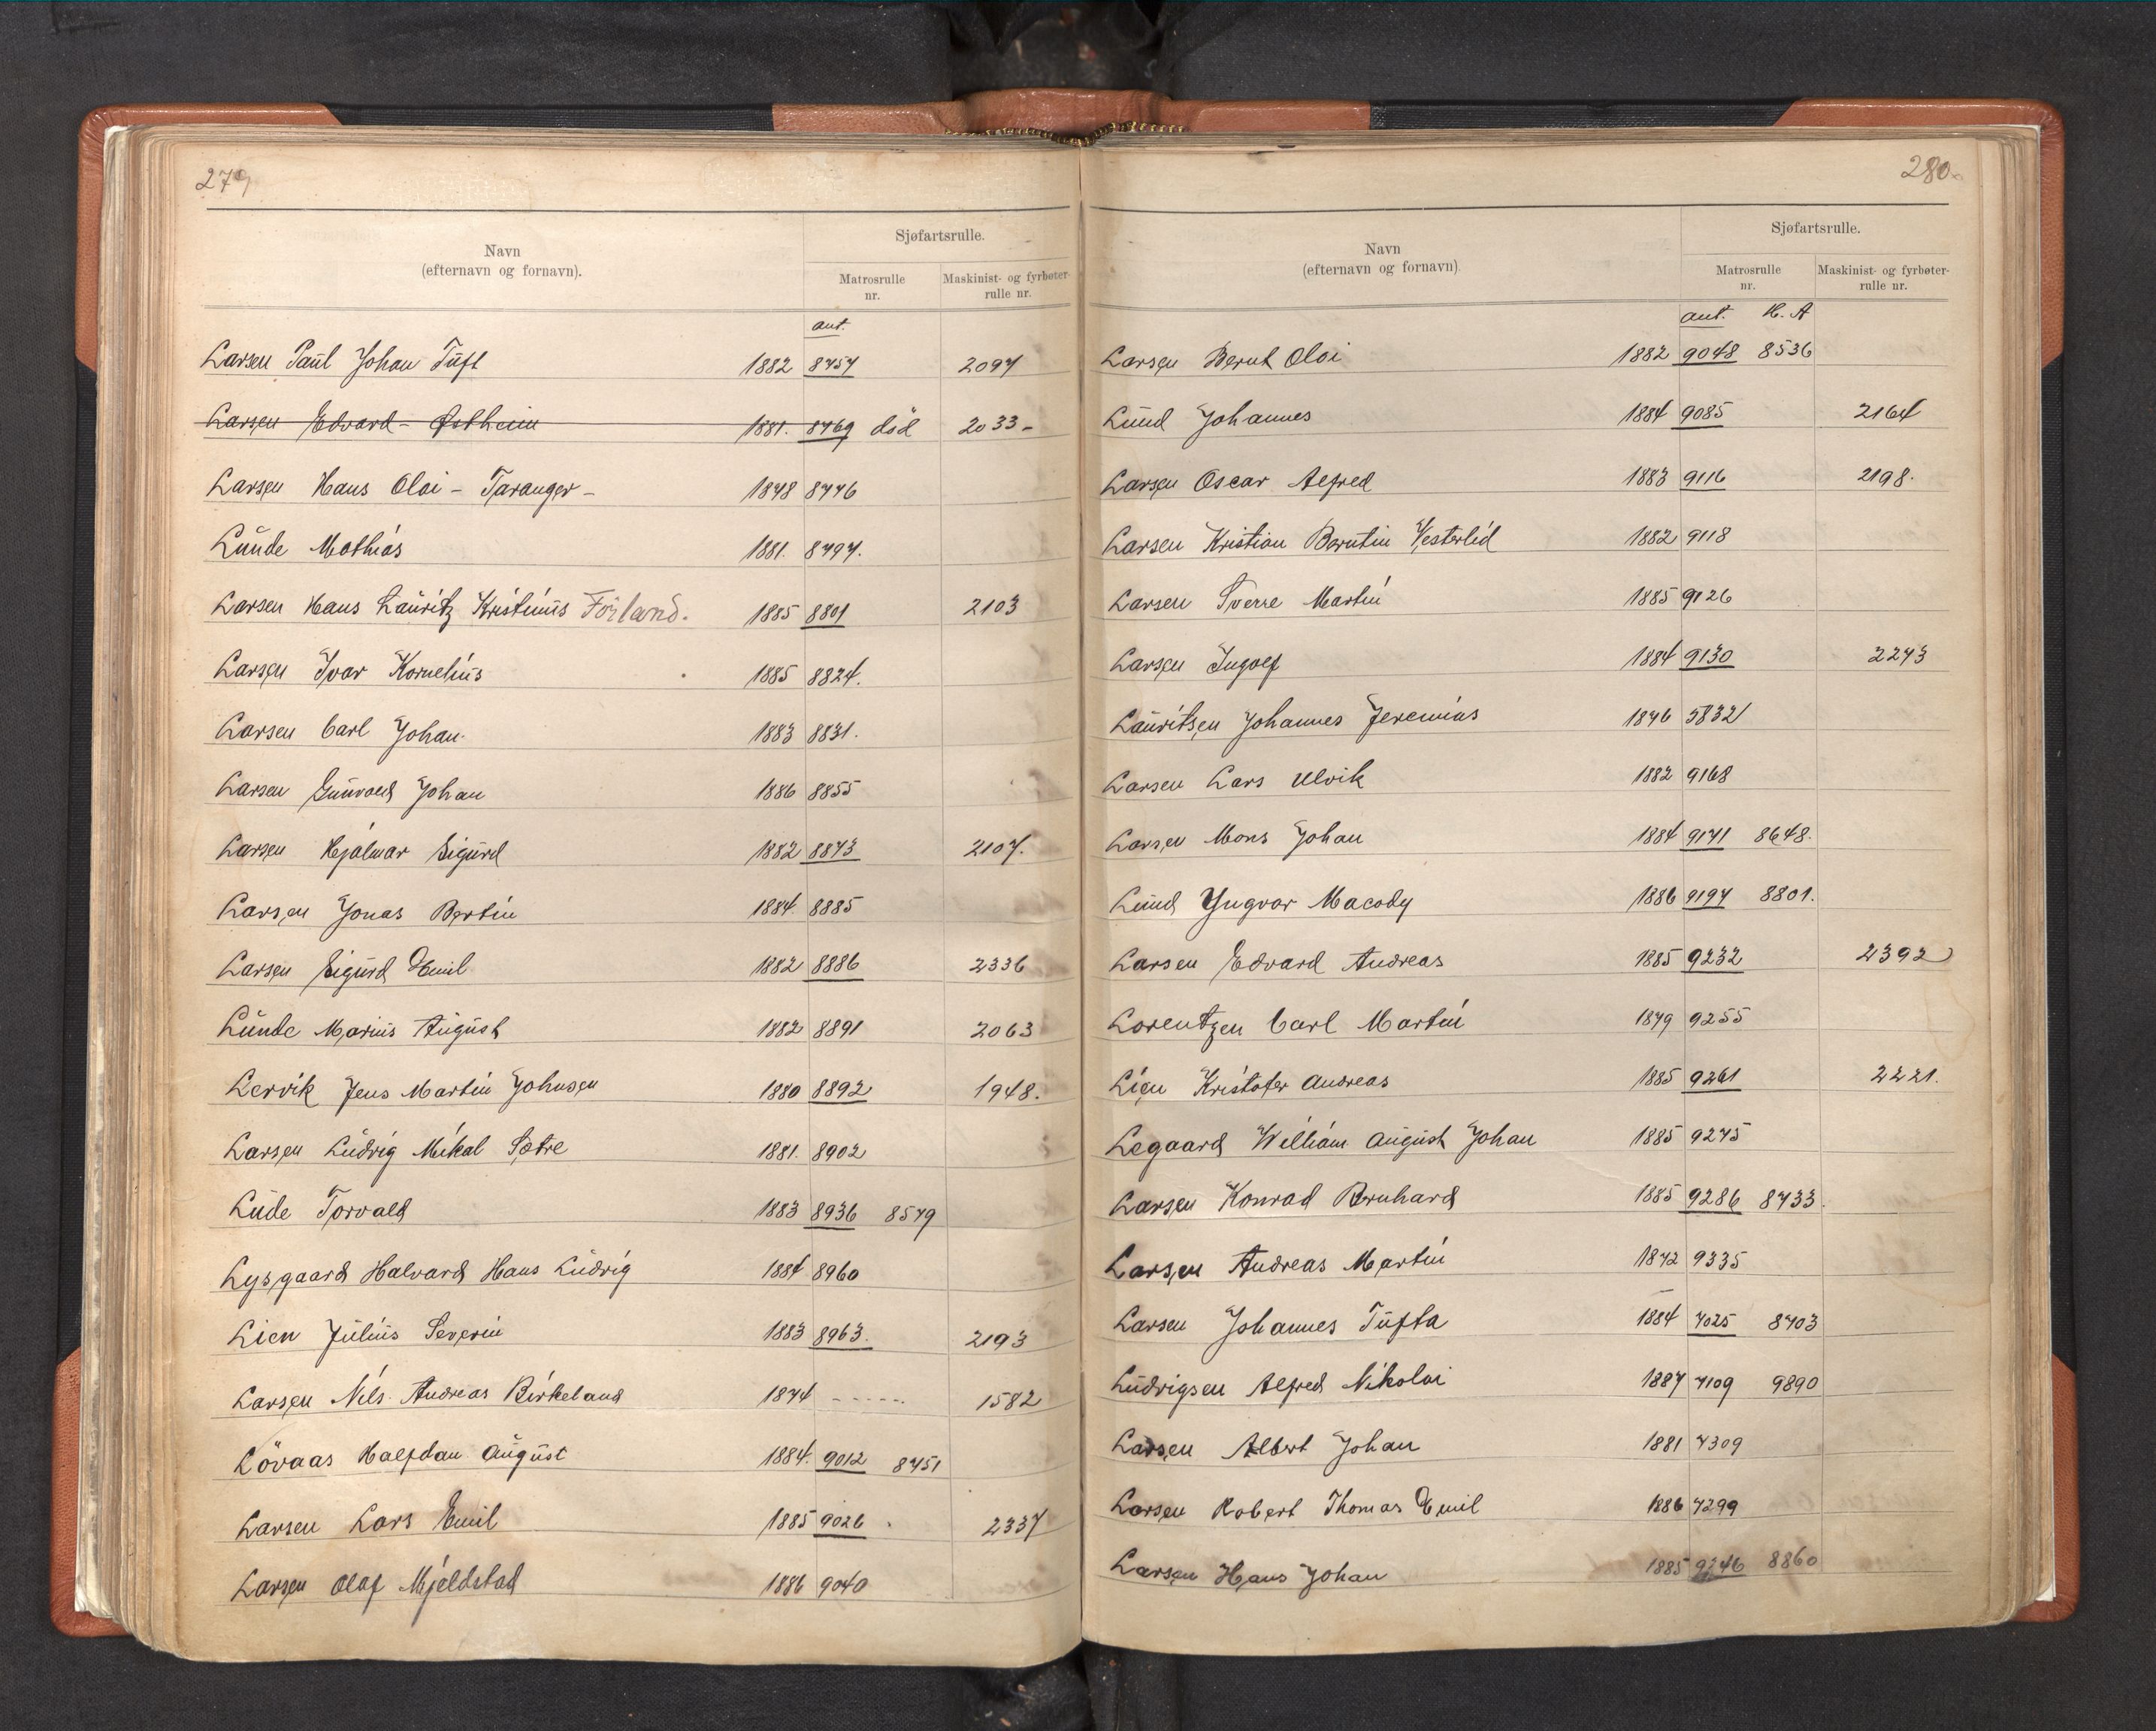 279
Navn
(efternavn og fornavn).
Sjøfartsrulle.
Matrosrulle nr.
Maskinist- og fyrbøter-rulle nr.
ant.
Larsen Paul Johan Tuft 1882 8757 2097
Larsen Edvard - Østheim 1881. 8769 död 2033 -
Larsen Hans Olai - Taranger - 1878 8776
Lunde Mathias 1881. 8797.
Larsen Hans Lauritz Kristinus Förland. 1885 8801 2103
Larsen Ivar Kornelius 1885 8824.
Larsen Carl Johan. 1883 8831.
Larsen Gunvald Johan 1886 8855
Larsen Hjalmar Sigurd 1882 8873 2107.
Larsen Jonas Bertin 1884. 8885
Larsen Sigurd Emil 1882 8886 2336
Lunde Marius August 1882 8891 2063
Lervik Jens Martin Johnsen 1880 8892 1948.
Larsen Ludvig Mikal Sætre 1881. 8902
Lude Torvald 1883 8936 8579
Lysgaard Halvard Hans Ludvig 1884 8960
Lien Julius Severin 1883 8963. 2193
Larsen Nils Andreas Birkeland 1874 - - - - - 1582
Lövaas Halfdan August 1884. 9012 8751
Larsen Lars Emil 1885 9026 2337
Larsen Olaf Mjeldstad 1886 9040
280
Navn
(efternavn og fornavn)
Sjøfartsrulle.
Matrosrulle nr.
Maskinist- og fyrbøter-rulle nr.
ant. H. A
Larsen Bernt Olai 1882 9048 8536
Lund Johannes 1884 9085 2164
Larsen Oscar Alfred 1883 9116 2198.
Larsen Kristian Berntin Vesterlid 1882 9118
Larsen Sverre Martin 1885 9126
Larsen Ingolf 1884 9130 2243
Lauritsen Johannes Jeremias 1876 5832
Larsen Lars Ulvik 1882 9168
Larsen Mons Johan 1884 9171 8648.
Lund Yngvar Macody 1886 9197 8801.
Larsen Edvard Andreas 1885 9232 2392
Lorentzen Carl Martin 1879 9255
Lien Kristofer Andreas 1885 9261 2221.
Legaard William August Johan 1885 9275
Larsen Konrad Bernhard 1885 9286 8733.
Larsen Andreas Martin 1872 9335
Larsen Johannes Tufta 1884 7025 8703
Ludvigsen Alfred Nikolai 1887 7109 9890
Larsen Albert Johan 1881 7309
Larsen Robert Thomas Emil 1886 7299
Larsen Hans Johan 1885 8860